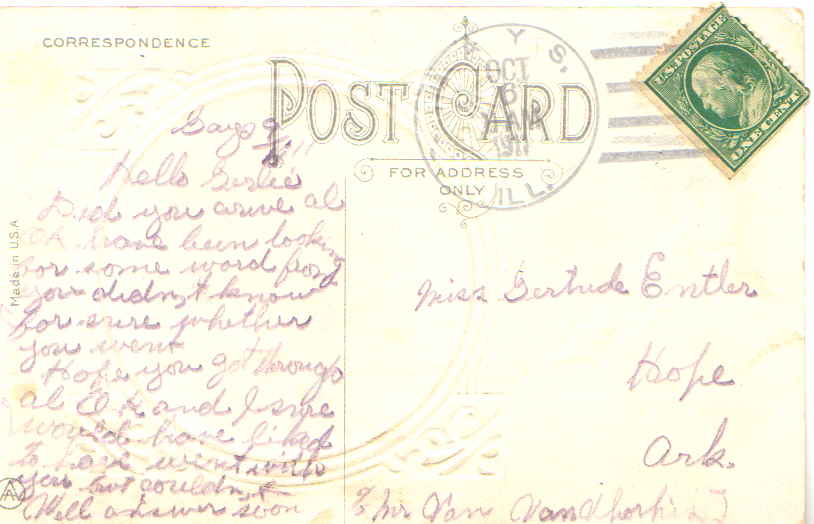 CORRESPONDENCE
POST CARD
FOR ADDRESS
ONLY
Made in U.S.A
YS.
OCT
6
AM
1911
ILL.
U.S. POSTAGE
ONE CENT
Gays
Hello Gertie
Did you arive al
OK have been looking
for some word from
you didn,t know
for sure whether
you went
Hope you got through
al OK and I sure
would have liked
to have went with
you but couldn,t
Well answer soon
Miss Gertrude Entler
Hope
Ark.
Mr Van